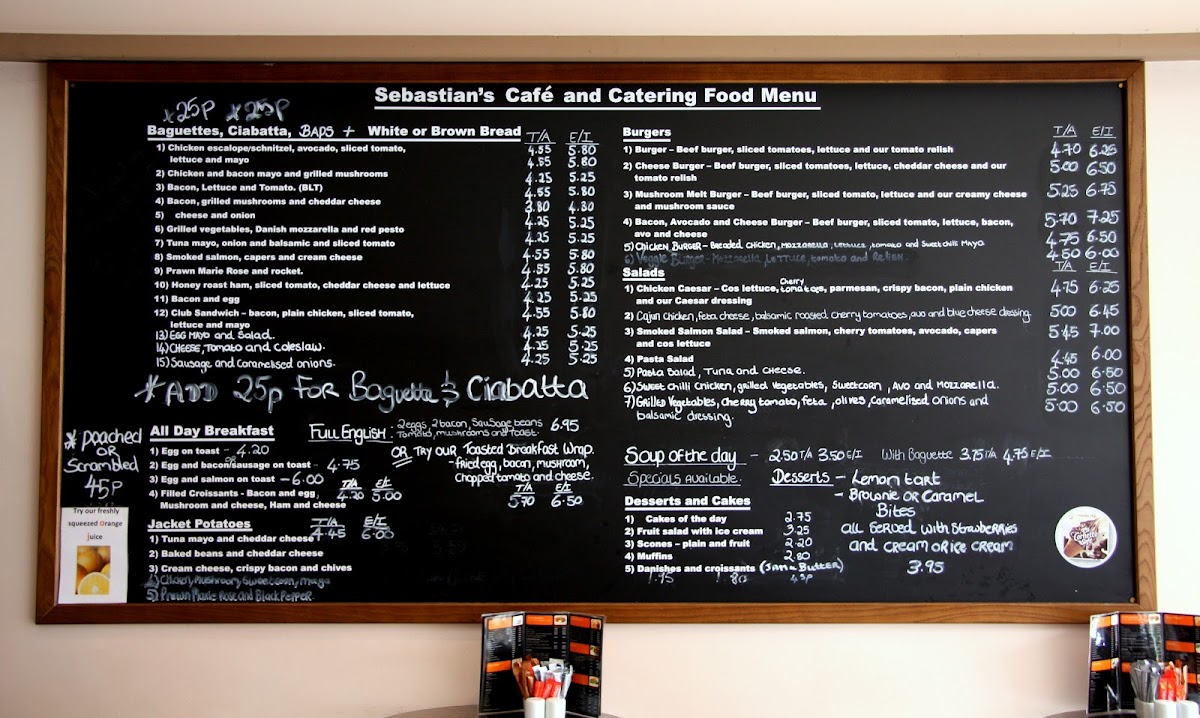 Sebastian's Café and Catering Food Menu
*25p *25p
Baguettes, Ciabatta, BAPS + White or Brown Bread T/A E/I
1) Chicken escalope/schnitzel, avocado, sliced tomato, 4.55 5.80
lettuce and mayo 4.55 5.80
2) Chicken and bacon mayo and grilled mushrooms
3) Bacon, Lettuce and Tomato. (BLT) 4.25 5.25
4) Bacon, grilled mushrooms and cheddar cheese 4.55 5.80
5) cheese and onion 3.80 4.80
6) Grilled vegetables, Danish mozzarella and red pesto 4.25 5.25
7) Tuna mayo, onion and balsamic and sliced tomato 4.25 5.25
8) Smoked salmon, capers and cream cheese 4.55 5.80
9) Prawn Marie Rose and rocket. 4.55 5.80
10) Honey roast ham, sliced tomato, cheddar cheese and lettuce 4.25 5.25
11) Bacon and egg 4.25 5.25
12) Club Sandwich – bacon, plain chicken, sliced tomato, 4.55 5.80
lettuce and mayo
13) EGG MAYO and Salad. 4.25 5.25
14) CHEESE, Tomato and coleslaw. 4.25 5.25
15) Sausage and caramelised onions. 4.25 5.25
*ADD 25p FOR Baguette & Ciabatta
* poached
OR
Scrambled
45p
Try our freshly
squeezed Orange
juice
All Day Breakfast
1) Egg on toast - 4.20
2) Egg and bacon OR sausage on toast - 4.75
3) Egg and salmon on toast - 6.00 T/A E/I
4) Filled Croissants - Bacon and egg, 4.20 5.00
Mushroom and cheese, Ham and cheese
FULL ENGLISH: 2 eggs, 2 bacon, Sausage beans 6.95
Tomato, mushrooms and toast.
OR TRY OUR Toasted Breakfast Wrap.
- fried egg, bacon, mushroom,
chopped tomato and cheese.
T/A E/I
5.70 6.50
Jacket Potatoes T/A E/I
1) Tuna mayo and cheddar cheese 4.45 6.00
2) Baked beans and cheddar cheese
3) Cream cheese, crispy bacon and chives
4) Chicken, Mushroom, Sweetcorn, mayo
5) Prawn Marie Rose and Black Pepper.
Burgers T/A E/I
1) Burger – Beef burger, sliced tomatoes, lettuce and our tomato relish 4.70 6.25
2) Cheese Burger – Beef burger, sliced tomatoes, lettuce, cheddar cheese and our 5.00 6.50
tomato relish
3) Mushroom Melt Burger – Beef burger, sliced tomato, lettuce and our creamy cheese 5.25 6.75
and mushroom sauce
4) Bacon, Avocado and Cheese Burger – Beef burger, sliced tomato, lettuce, bacon, 5.70 7.25
avo and cheese
5) CHICKEN BURGER – Breaded chicken, mozzarella, lettuce, tomato and Sweet chilli Mayo 4.75 6.50
6) Veggie Burger – Mozzarella, Lettuce, tomato and Relish. 4.50 6.00
Salads T/A E/I
1) Chicken Caesar – Cos lettuce, Cherry tomatoes, parmesan, crispy bacon, plain chicken 4.75 6.25
and our Caesar dressing
2) Cajun chicken, feta cheese, balsamic roasted cherry tomatoes, avo and blue cheese dressing. 5.00 6.45
3) Smoked Salmon Salad – Smoked salmon, cherry tomatoes, avocado, capers 5.45 7.00
and cos lettuce
4) Pasta Salad 4.45 6.00
5) Pasta Salad, Tuna and Cheese. 5.00 6.50
6) Sweet chilli chicken, grilled Vegetables, Sweetcorn, Avo and Mozzarella. 5.00 6.50
7) Grilled Vegetables, Cherry tomato, feta, olives, caramelized onions and 5.00 6.50
balsamic dressing.
Soup of the day - 2.50 T/A 3.50 E/I With Baguette 3.75 T/A 4.75 E/I
Specials Available.
Desserts - Lemon tart
- Brownie OR Caramel
Bites
all served with strawberries
and cream or ice cream
3.95
Desserts and Cakes
1) Cakes of the day 2.75
2) Fruit salad with ice cream 3.25
3) Scones – plain and fruit 2.20
4) Muffins 2.80
5) Danishes and croissants (JAM & BUTTER)
1.75 1.80 45p
Cornetto